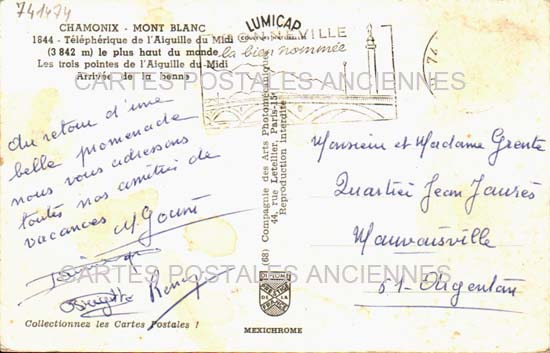 741474
CHAMONIX - MONT BLANC
1844 - Téléphérique de l'Aiguille du Midi
(3842 m) le plus haut du monde
Les trois pointes de l'Aiguille du Midi
Arrivée de la benne
LUMICAP
NNEVILLE
la bien nommée
CARTES POSTALES ANCIENNES
Au retour d'une
belle promenade
nous vous adressons
toutes nos amitiés de
vacances
Brigitte
(68) Compagnie des Arts Photomécaniques
44, rue Letellier, Paris-15e
Reproduction interdite
Monsieur et Madame Grente
Quartier Jean Jaurès
Mauvaisville
61-Argentan
CARTES POSTALES ANCIENNES
Collectionnez les Cartes Postales !
MEXICHROME